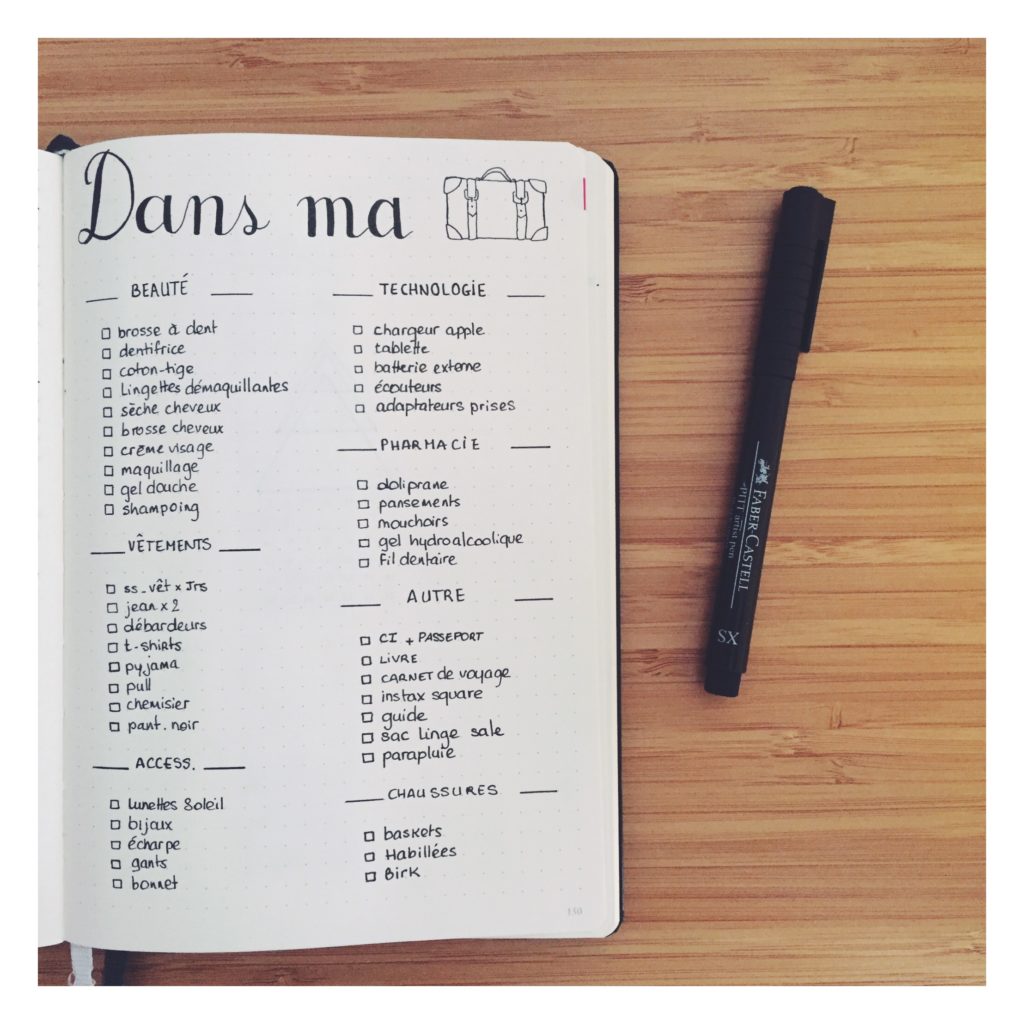 Dans ma
BEAUTÉ
brosse à dent
dentifrice
coton-tige
Lingettes démaquillantes
sèche cheveux
brosse cheveux
crème visage
maquillage
gel douche
shampoing
VÊTEMENTS
ss_vêt x Jrs
jean x 2
débardeurs
t-shirts
pyjama
pull
chemisier
pant. noir
ACCESS.
lunettes Soleil
bijoux
écharpe
gants
bonnet
TECHNOLOGIE
chargeur apple
tablette
batterie externe
écouteurs
adaptateurs prises
PHARMACIE
doliprane
pansements
mouchoirs
gel hydroalcoolique
fil dentaire
AUTRE
CI + PASSEPORT
LIVRE
CARNET de voyage
instax square
guide
sac linge sale
parapluie
CHAUSSURES
baskets
Habillées
Birk
130
FABER-CASTELL
PITT artist pen
XS